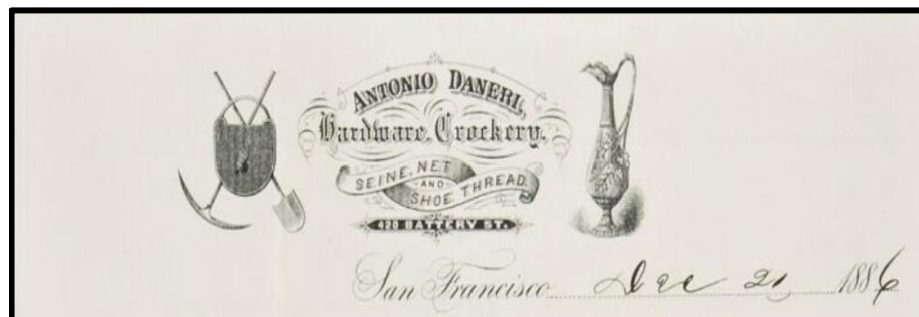 ANTONIO DANERI,
Hardware, Crockery.
SEINE, NET
AND
SHOE THREAD.
420 BATTERY ST.
San Francisco Dec 21, 1886